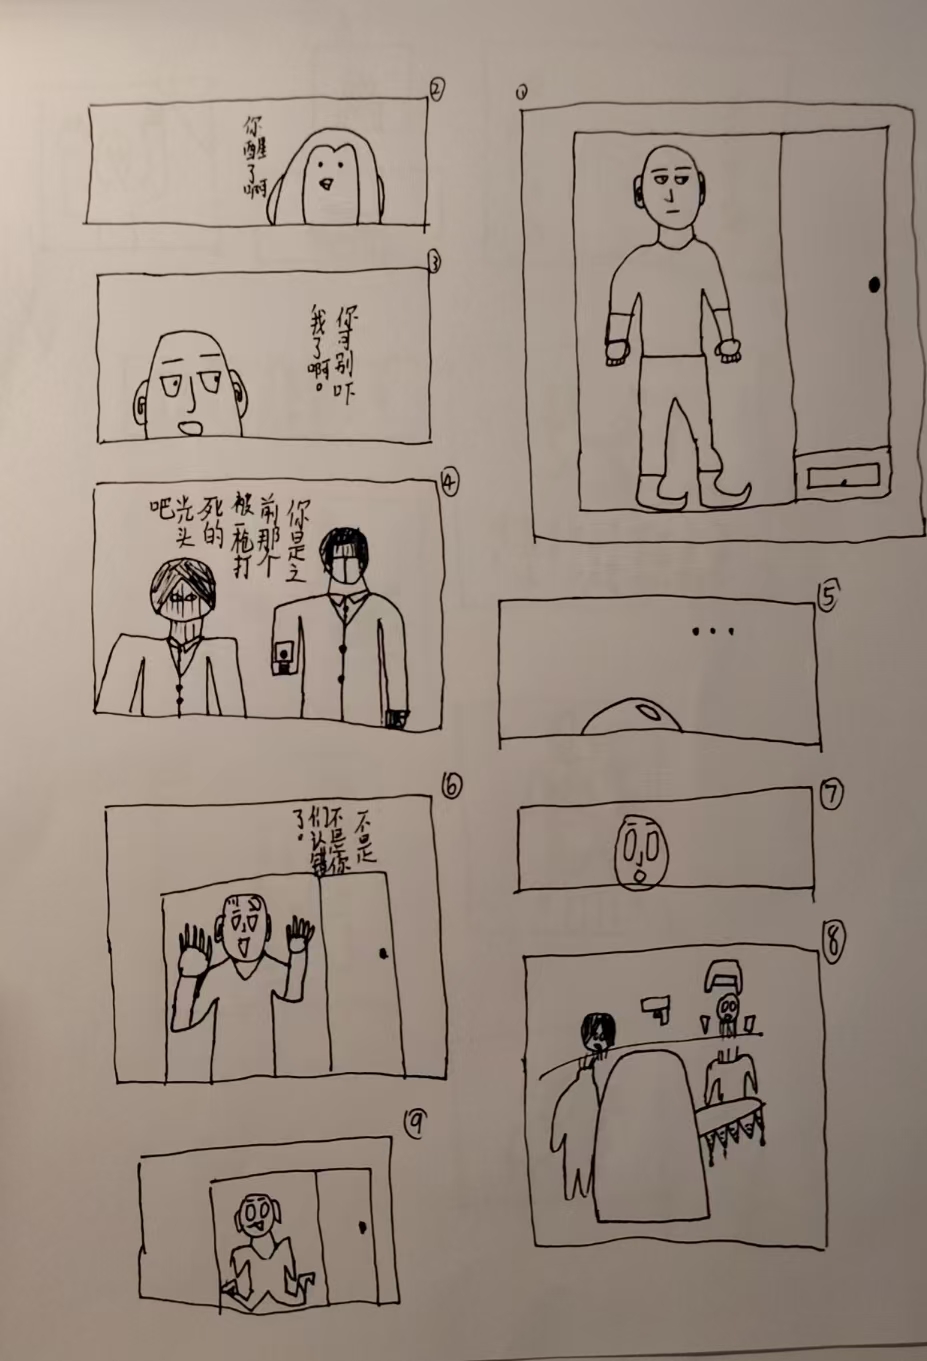 ①
②
你醒了啊
③
你可别吓
我了啊。
④
你是之
前那个
被一枪打
死的
光头
吧
⑤
...
⑥
不是
不是你
们认错
了。
⑦
⑧
⑨